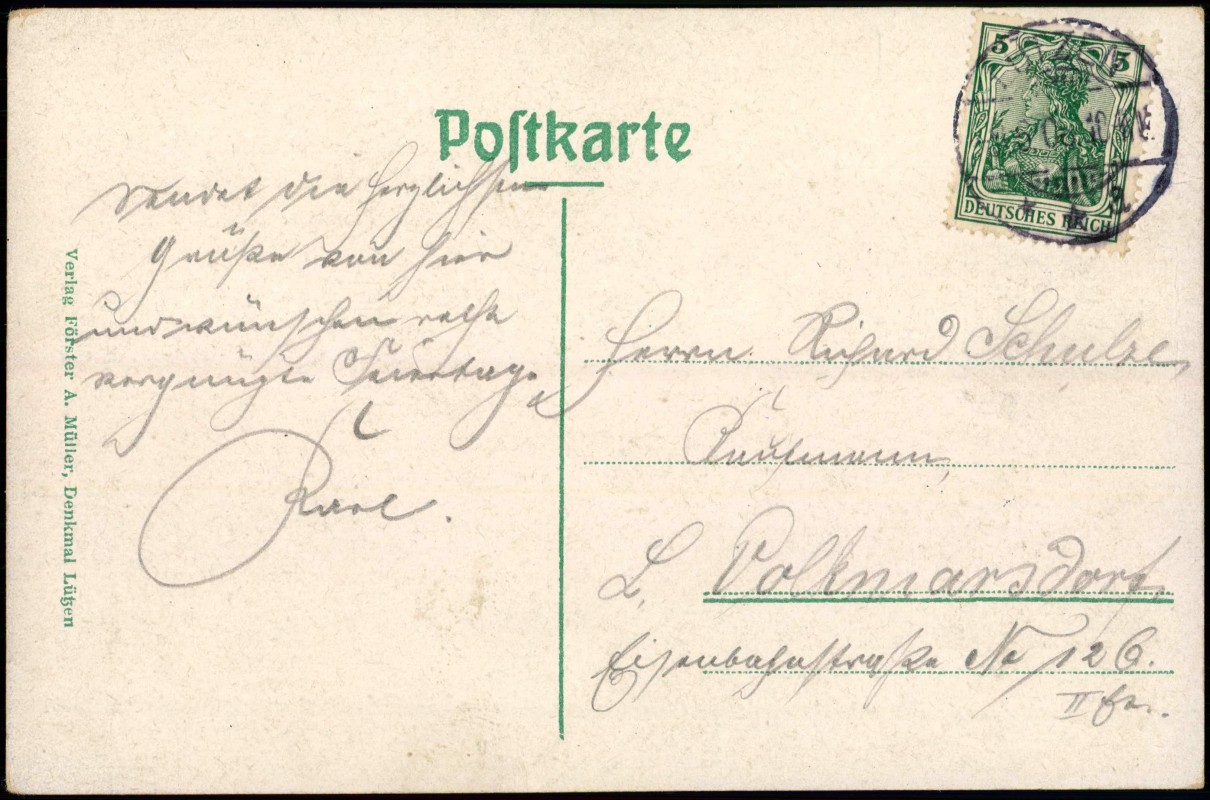 Postkarte
Sendet die herzlichsten
Grüße von hier
und wünschen recht
vergnügte Feiertage
Karl.
Verlag Förster A. Müller, Denkmal Lützen
5 5
DEUTSCHES REICH
Herrn Richard Schulze,
Kaufmann,
L. Volkmarsdorf,
Eisenbahnstraße No 126.
II